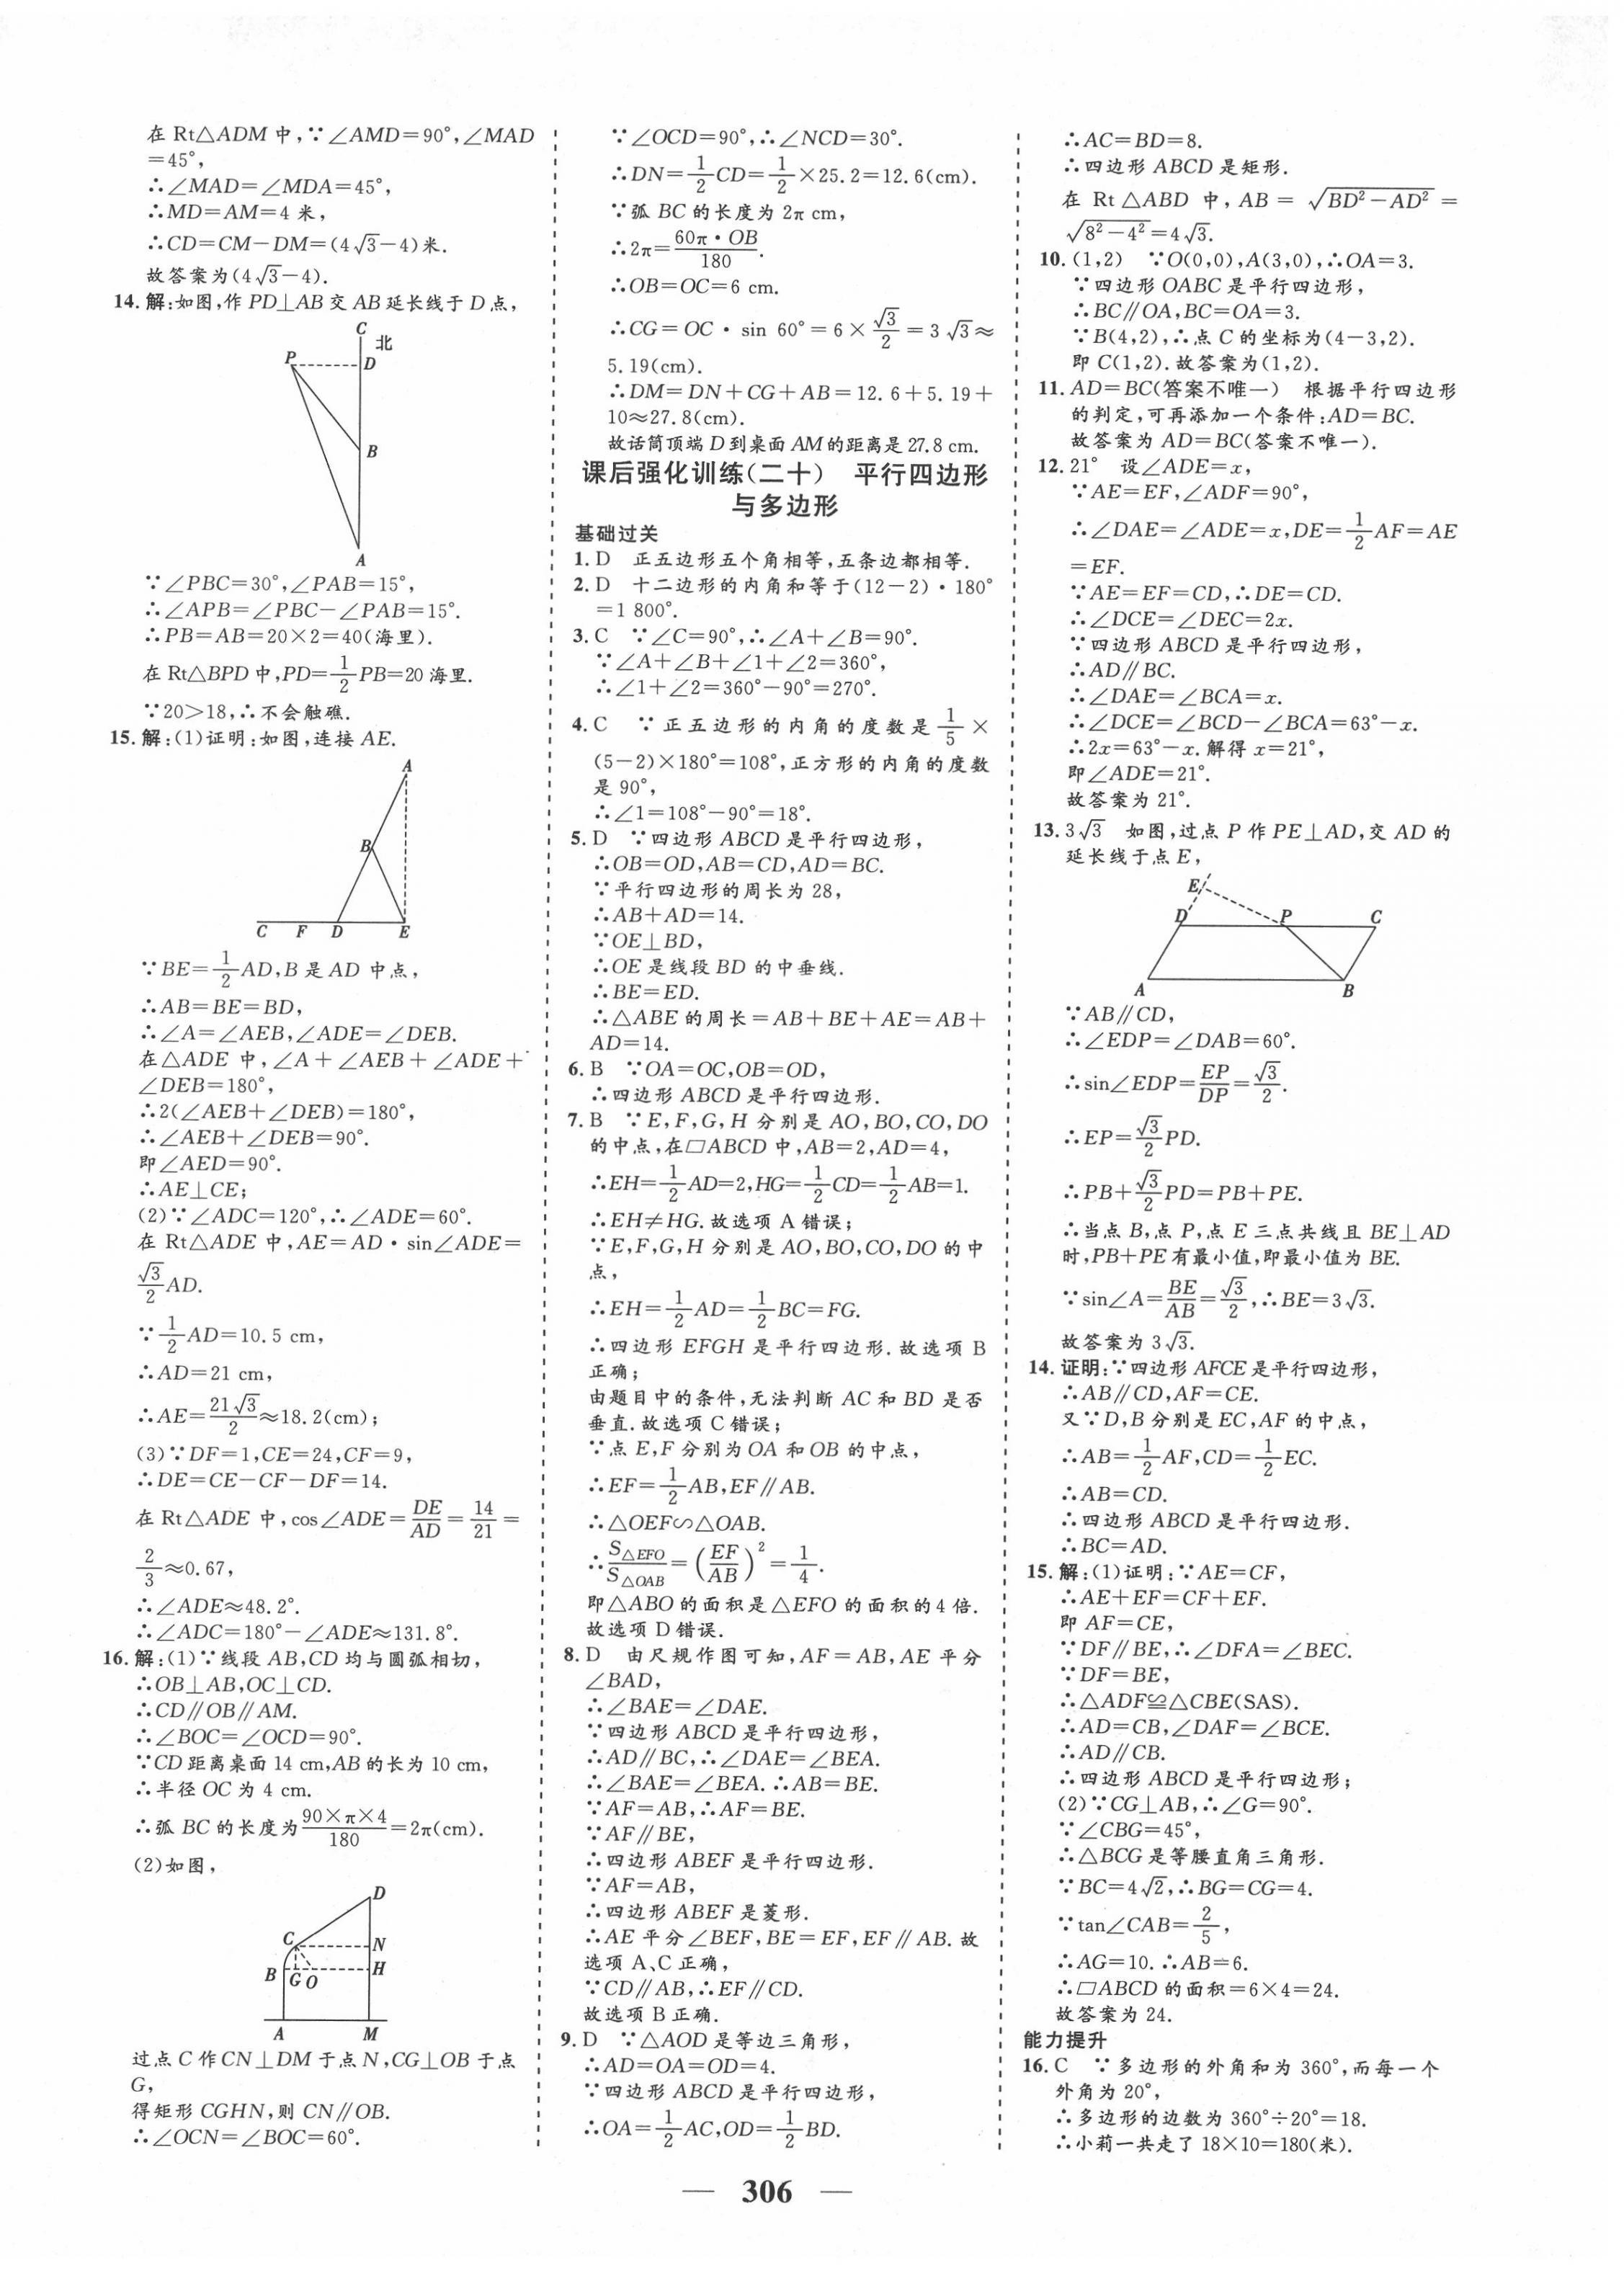 在 Rt△ADM 中,∵∠AMD=90°,∠MAD
=45°,
∴∠MAD=∠MDA=45°,
∴MD=AM=4 米,
∴CD=CM-DM=(4√3-4)米.
故答案为(4√3-4).
14.解:如图,作 PD⊥AB 交 AB 延长线于 D 点,
C
北
P
D
B
A
∵∠PBC=30°,∠PAB=15°,
∴∠APB=∠PBC-∠PAB=15°.
∴PB=AB=20×2=40(海里).
在 Rt△BPD 中,PD=1/2PB=20 海里.
∵20>18,∴不会触礁.
15.解:(1)证明:如图,连接 AE.
A
B
C F D E
∵BE=1/2AD,B 是 AD 中点,
∴AB=BE=BD,
∴∠A=∠AEB,∠ADE=∠DEB.
在△ADE 中,∠A+∠AEB+∠ADE+
∠DEB=180°,
∴2(∠AEB+∠DEB)=180°,
∴∠AEB+∠DEB=90°.
即∠AED=90°.
∴AE⊥CE;
(2)∵∠ADC=120°,∴∠ADE=60°.
在 Rt△ADE 中,AE=AD·sin∠ADE=
√3/2AD.
∵1/2AD=10.5 cm,
∴AD=21 cm,
∴AE=21√3/2≈18.2(cm);
(3)∵DF=1,CE=24,CF=9,
∴DE=CE-CF-DF=14.
在 Rt△ADE 中,cos∠ADE=DE/AD=14/21=
2/3≈0.67,
∴∠ADE≈48.2°.
∴∠ADC=180°-∠ADE≈131.8°.
16.解:(1)∵线段 AB,CD 均与圆弧相切,
∴OB⊥AB,OC⊥CD.
∴CD∥OB∥AM.
∴∠BOC=∠OCD=90°.
∵CD 距离桌面 14 cm,AB 的长为 10 cm,
∴半径 OC 为 4 cm.
∴弧 BC 的长度为90×π×4/180=2π(cm).
(2)如图,
D
C
N
B G O H
A M
过点 C 作 CN⊥DM 于点 N,CG⊥OB 于点
G,
得矩形 CGHN,则 CN∥OB.
∴∠OCN=∠BOC=60°.
∵∠OCD=90°,∴∠NCD=30°.
∴DN=1/2CD=1/2×25.2=12.6(cm).
∵弧 BC 的长度为 2π cm,
∴2π=60π·OB/180.
∴OB=OC=6 cm.
∴CG=OC·sin 60°=6×√3/2=3√3≈
5.19(cm).
∴DM=DN+CG+AB=12.6+5.19+
10≈27.8(cm).
故话筒顶端 D 到桌面 AM 的距离是 27.8 cm.
课后强化训练(二十) 平行四边形
与多边形
基础过关
1.D 正五边形五个角相等,五条边都相等.
2.D 十二边形的内角和等于(12-2)·180°
=1 800°.
3.C ∵∠C=90°,∴∠A+∠B=90°.
∵∠A+∠B+∠1+∠2=360°,
∴∠1+∠2=360°-90°=270°.
4.C ∵正五边形的内角的度数是1/5×
(5-2)×180°=108°,正方形的内角的度数
是 90°,
∴∠1=108°-90°=18°.
5.D ∵四边形 ABCD 是平行四边形,
∴OB=OD,AB=CD,AD=BC.
∵平行四边形的周长为 28,
∴AB+AD=14.
∵OE⊥BD,
∴OE 是线段 BD 的中垂线.
∴BE=ED.
∴△ABE 的周长=AB+BE+AE=AB+
AD=14.
6.B ∵OA=OC,OB=OD,
∴四边形 ABCD 是平行四边形.
7.B ∵E,F,G,H 分别是 AO,BO,CO,DO
的中点,在▱ABCD 中,AB=2,AD=4,
∴EH=1/2AD=2,HG=1/2CD=1/2AB=1.
∴EH≠HG.故选项 A 错误;
∵E,F,G,H 分别是 AO,BO,CO,DO 的中
点,
∴EH=1/2AD=1/2BC=FG.
∴四边形 EFGH 是平行四边形.故选项 B
正确;
由题目中的条件,无法判断 AC 和 BD 是否
垂直.故选项 C 错误;
∵点 E,F 分别为 OA 和 OB 的中点,
∴EF=1/2AB,EF∥AB.
∴△OEF∽△OAB.
∴S△EFO/S△OAB=(EF/AB)²=1/4.
即△ABO 的面积是△EFO 的面积的 4 倍.
故选项 D 错误.
8.D 由尺规作图可知,AF=AB,AE 平分
∠BAD,
∴∠BAE=∠DAE.
∵四边形 ABCD 是平行四边形,
∴AD∥BC,∴∠DAE=∠BEA.
∴∠BAE=∠BEA.∴AB=BE.
∵AF=AB,∴AF=BE.
∵AF∥BE,
∴四边形 ABEF 是平行四边形.
∵AF=AB,
∴四边形 ABEF 是菱形.
∴AE 平分∠BEF,BE=EF,EF∥AB.故
选项 A、C 正确,
∵CD∥AB,∴EF∥CD.
故选项 B 正确.
9.D ∵△AOD 是等边三角形,
∴AD=OA=OD=4.
∵四边形 ABCD 是平行四边形,
∴OA=1/2AC,OD=1/2BD.
∴AC=BD=8.
∴四边形 ABCD 是矩形.
在 Rt△ABD 中,AB=√(BD²-AD²)=
√(8²-4²)=4√3.
10.(1,2) ∵O(0,0),A(3,0),∴OA=3.
∵四边形 OABC 是平行四边形,
∴BC∥OA,BC=OA=3.
∵B(4,2),∴点 C 的坐标为(4-3,2).
即 C(1,2).故答案为(1,2).
11.AD=BC(答案不唯一) 根据平行四边形
的判定,可再添加一个条件:AD=BC.
故答案为 AD=BC(答案不唯一).
12.21° 设∠ADE=x,
∵AE=EF,∠ADF=90°,
∴∠DAE=∠ADE=x,DE=1/2AF=AE
=EF.
∵AE=EF=CD,∴DE=CD.
∴∠DCE=∠DEC=2x.
∵四边形 ABCD 是平行四边形,
∴AD∥BC.
∴∠DAE=∠BCA=x.
∴∠DCE=∠BCD-∠BCA=63°-x.
∴2x=63°-x.解得 x=21°,
即∠ADE=21°.
故答案为 21°.
13.3√3 如图,过点 P 作 PE⊥AD,交 AD 的
延长线于点 E,
E
D P C
A B
∵AB∥CD,
∴∠EDP=∠DAB=60°.
∴sin∠EDP=EP/DP=√3/2.
∴EP=√3/2PD.
∴PB+√3/2PD=PB+PE.
∴当点 B,点 P,点 E 三点共线且 BE⊥AD
时,PB+PE 有最小值,即最小值为 BE.
∵sin∠A=BE/AB=√3/2,∴BE=3√3.
故答案为 3√3.
14.证明:∵四边形 AFCE 是平行四边形,
∴AB∥CD,AF=CE.
又∵D,B 分别是 EC,AF 的中点,
∴AB=1/2AF,CD=1/2EC.
∴AB=CD.
∴四边形 ABCD 是平行四边形.
∴BC=AD.
15.解:(1)证明:∵AE=CF,
∴AE+EF=CF+EF.
即 AF=CE,
∵DF∥BE,∴∠DFA=∠BEC.
∵DF=BE,
∴△ADF≌△CBE(SAS).
∴AD=CB,∠DAF=∠BCE.
∴AD∥CB.
∴四边形 ABCD 是平行四边形;
(2)∵CG⊥AB,∴∠G=90°.
∵∠CBG=45°,
∴△BCG 是等腰直角三角形.
∵BC=4√2,∴BG=CG=4.
∵tan∠CAB=2/5,
∴AG=10.∴AB=6.
∴▱ABCD 的面积=6×4=24.
故答案为 24.
能力提升
16.C ∵多边形的外角和为 360°,而每一个
外角为 20°,
∴多边形的边数为 360°÷20°=18.
∴小莉一共走了 18×10=180(米).
— 306 —